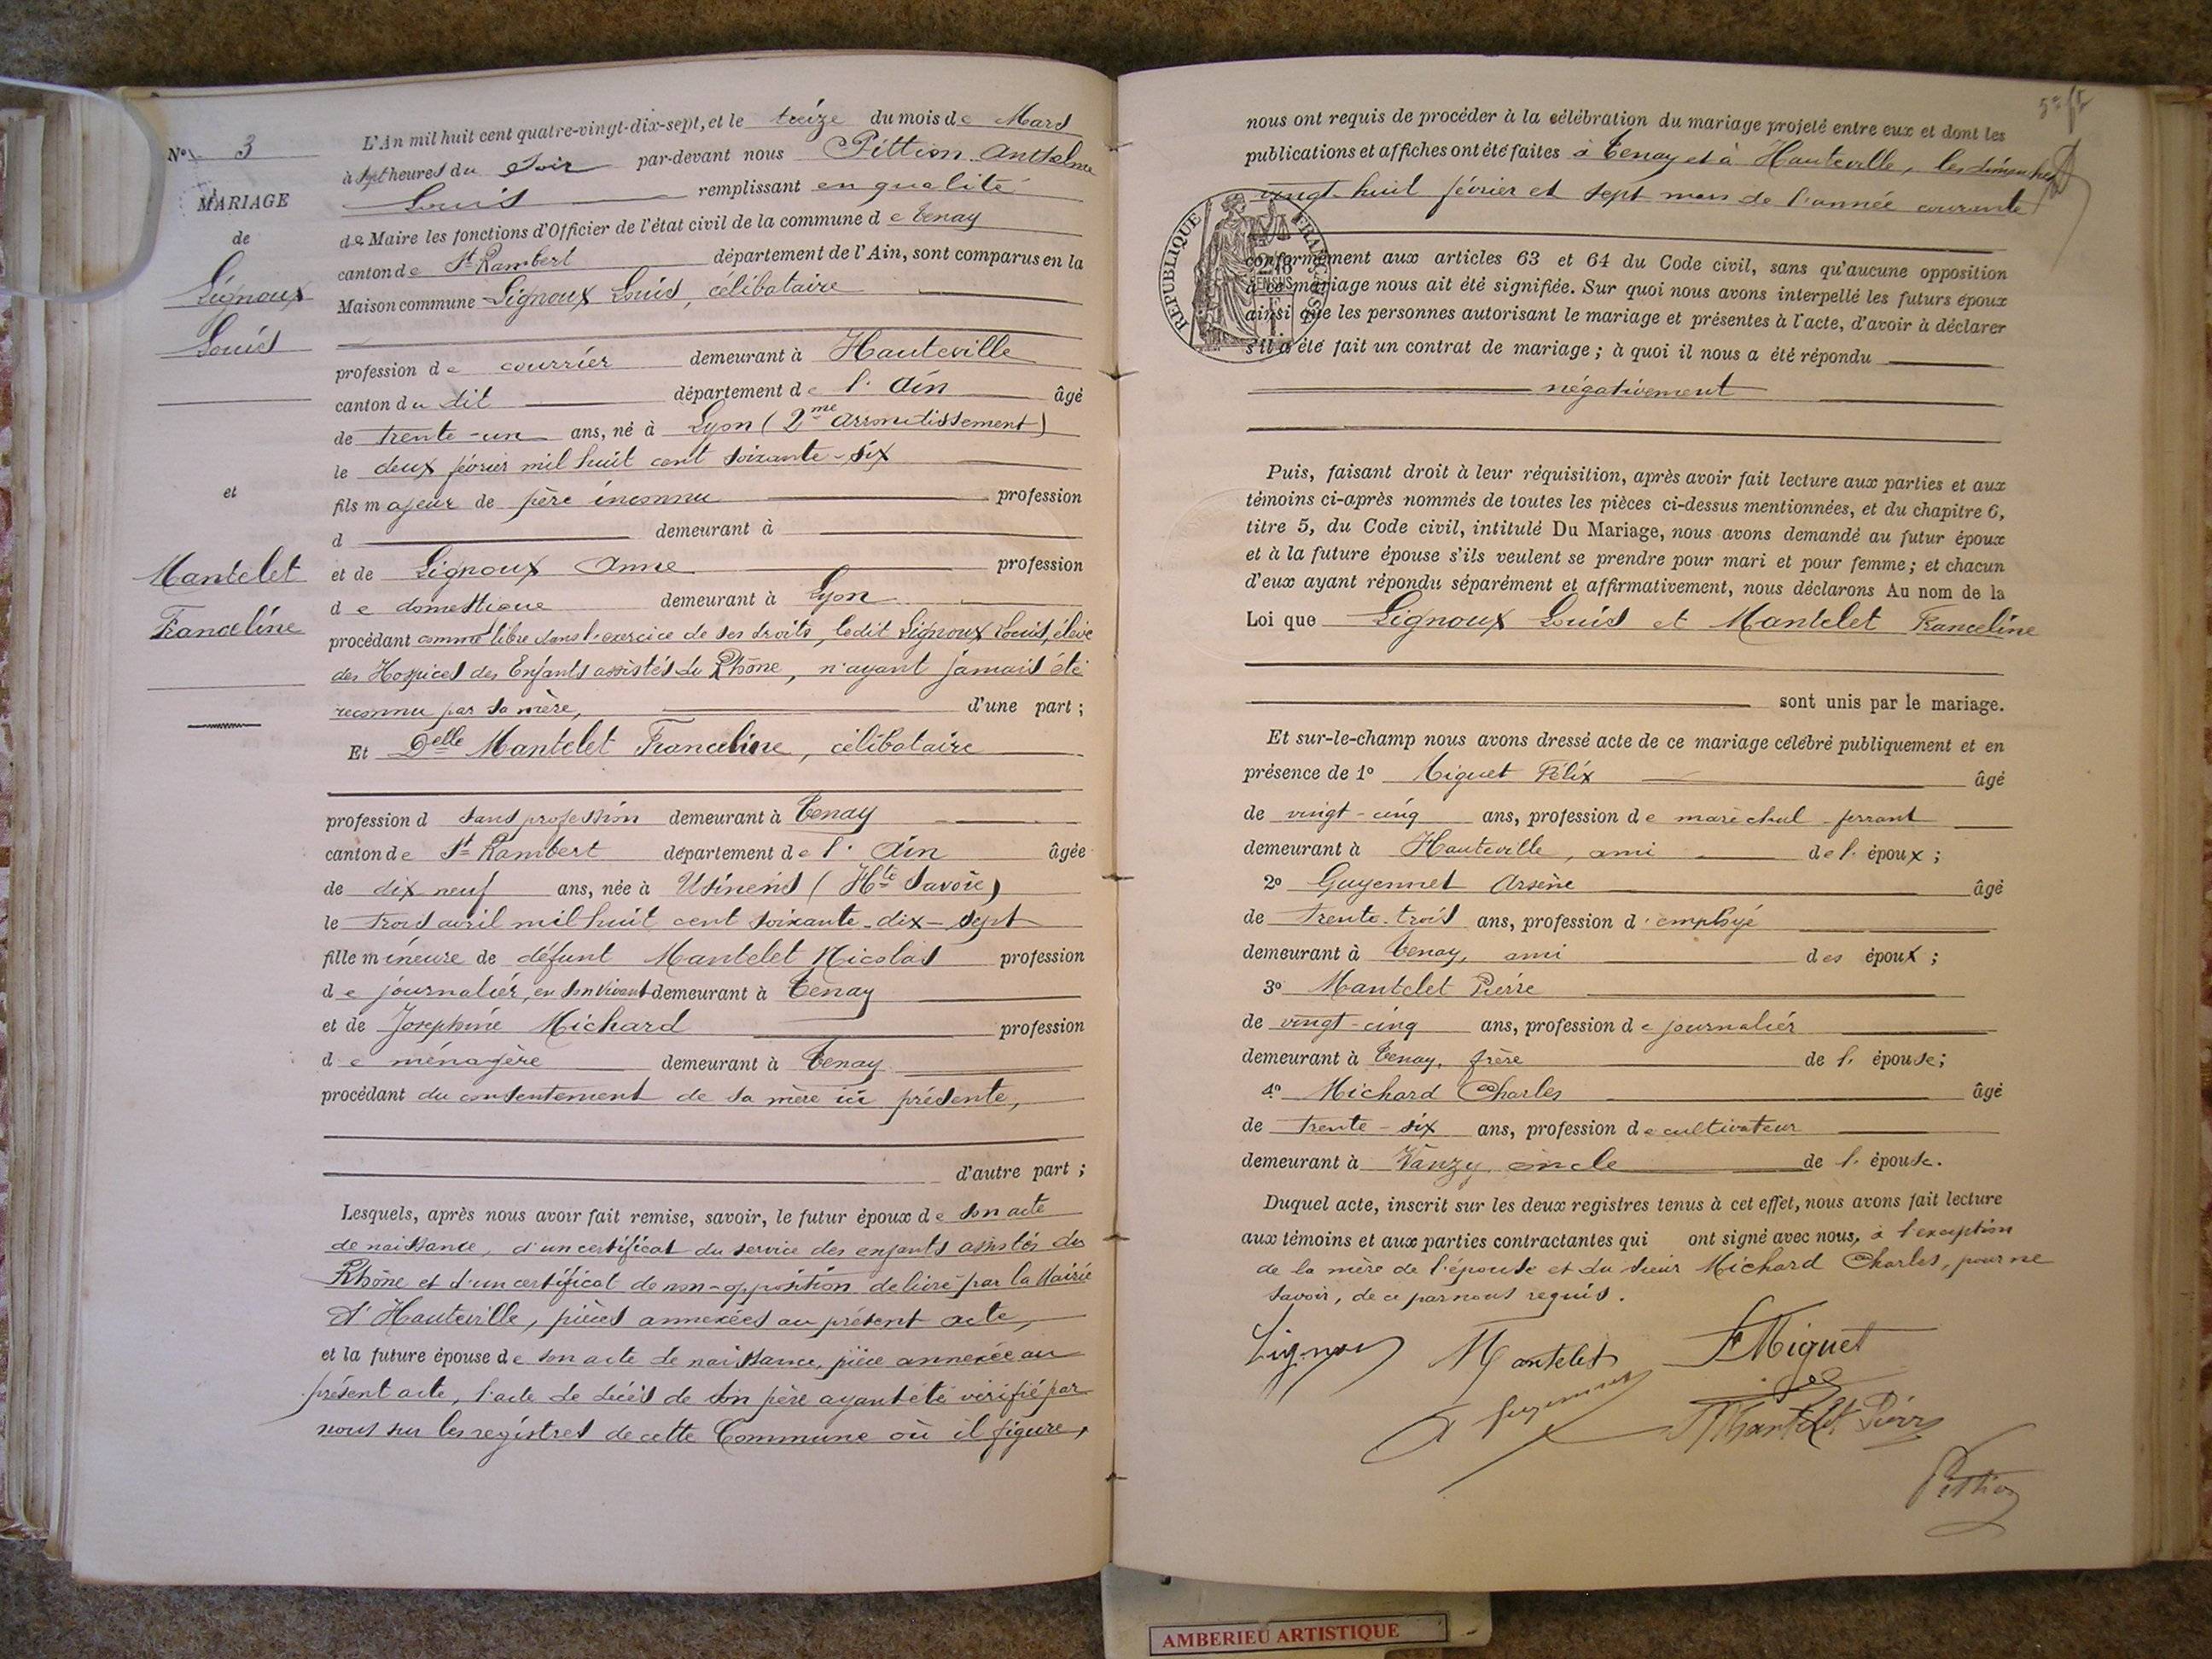 N° 3
MARIAGE
de
Lignoux
Louis
et
Mantelet
Franceline
L'An mil huit cent quatre-vingt-dix-sept, et le treize du mois de Mars
à sept heures du soir par-devant nous Pittion Anthelme
Louis remplissant en qualité
de Maire les fonctions d'Officier de l'état civil de la commune de Tenay
canton de St Rambert département de l'Ain, sont comparus en la
Maison commune Lignoux Louis, célibataire
profession de courrier demeurant à Hauteville
canton du dit département de l'Ain âgé
de trente-un ans, né à Lyon (2me arrondissement)
le deux février mil huit cent soixante-six
fils majeur de père inconnu profession
d demeurant à
et de Lignoux Anne profession
de domestique demeurant à Lyon
procédant comme libre dans l'exercice de ses droits, ledit Lignoux Louis, élève
des Hospices des Enfants assistés du Rhône, n'ayant jamais été
reconnu par sa mère, d'une part ;
Et Delle Mantelet Franceline, célibataire
profession d sans profession demeurant à Tenay
canton de St Rambert département de l'Ain âgée
de dix neuf ans, née à Usinens (Hte Savoie)
le trois avril mil huit cent soixante-dix-sept
fille mineure de défunt Mantelet Nicolas profession
de journalier, en son vivant demeurant à Tenay
et de Joséphine Michard profession
de ménagère demeurant à Tenay
procédant du consentement de sa mère ici présente,
d'autre part ;
Lesquels, après nous avoir fait remise, savoir, le futur époux de son acte
de naissance, d'un certificat du service des enfants assistés du
Rhône et d'un certificat de non-opposition délivré par la Mairie
d'Hauteville, pièces annexées au présent acte,
et la future épouse de son acte de naissance, pièce annexée au
présent acte, l'acte de décès de son père ayant été vérifié par
nous sur les registres de cette Commune où il figure,
nous ont requis de procéder à la célébration du mariage projeté entre eux et dont les
publications et affiches ont été faites à Tenay et à Hauteville, les dimanches
vingt-huit février et sept mars de l'année courante
REPUBLIQUE FRANÇAISE
conformément aux articles 63 et 64 du Code civil, sans qu'aucune opposition
à ce mariage nous ait été signifiée. Sur quoi nous avons interpellé les futurs époux
ainsi que les personnes autorisant le mariage et présentes à l'acte, d'avoir à déclarer
s'il a été fait un contrat de mariage ; à quoi il nous a été répondu
négativement
Puis, faisant droit à leur réquisition, après avoir fait lecture aux parties et aux
témoins ci-après nommés de toutes les pièces ci-dessus mentionnées, et du chapitre 6,
titre 5, du Code civil, intitulé Du Mariage, nous avons demandé au futur époux
et à la future épouse s'ils veulent se prendre pour mari et pour femme ; et chacun
d'eux ayant répondu séparément et affirmativement, nous déclarons Au nom de la
Loi que Lignoux Louis et Mantelet Franceline
sont unis par le mariage.
Et sur-le-champ nous avons dressé acte de ce mariage célébré publiquement et en
présence de 1° Miguet Félix âgé
de vingt-cinq ans, profession de maréchal-ferrant
demeurant à Hauteville, ami de l'époux ;
2° Guyennet Arsène âgé
de trente-trois ans, profession d'employé
demeurant à Tenay, ami des époux ;
3° Mantelet Pierre
de vingt-cinq ans, profession de journalier
demeurant à Tenay, frère de l'épouse ;
4° Michard Charles âgé
de trente-six ans, profession de cultivateur
demeurant à Vanzy, oncle de l'épouse.
Duquel acte, inscrit sur les deux registres tenus à cet effet, nous avons fait lecture
aux témoins et aux parties contractantes qui ont signé avec nous, à l'exception
de la mère de l'épouse et du sieur Michard Charles, pour ne
savoir, de ce par nous requis.
Lignoux Mantelet F Miguet
A Guyennet Mantelet Pierre
Pittion
AMBERIEU ARTISTIQUE